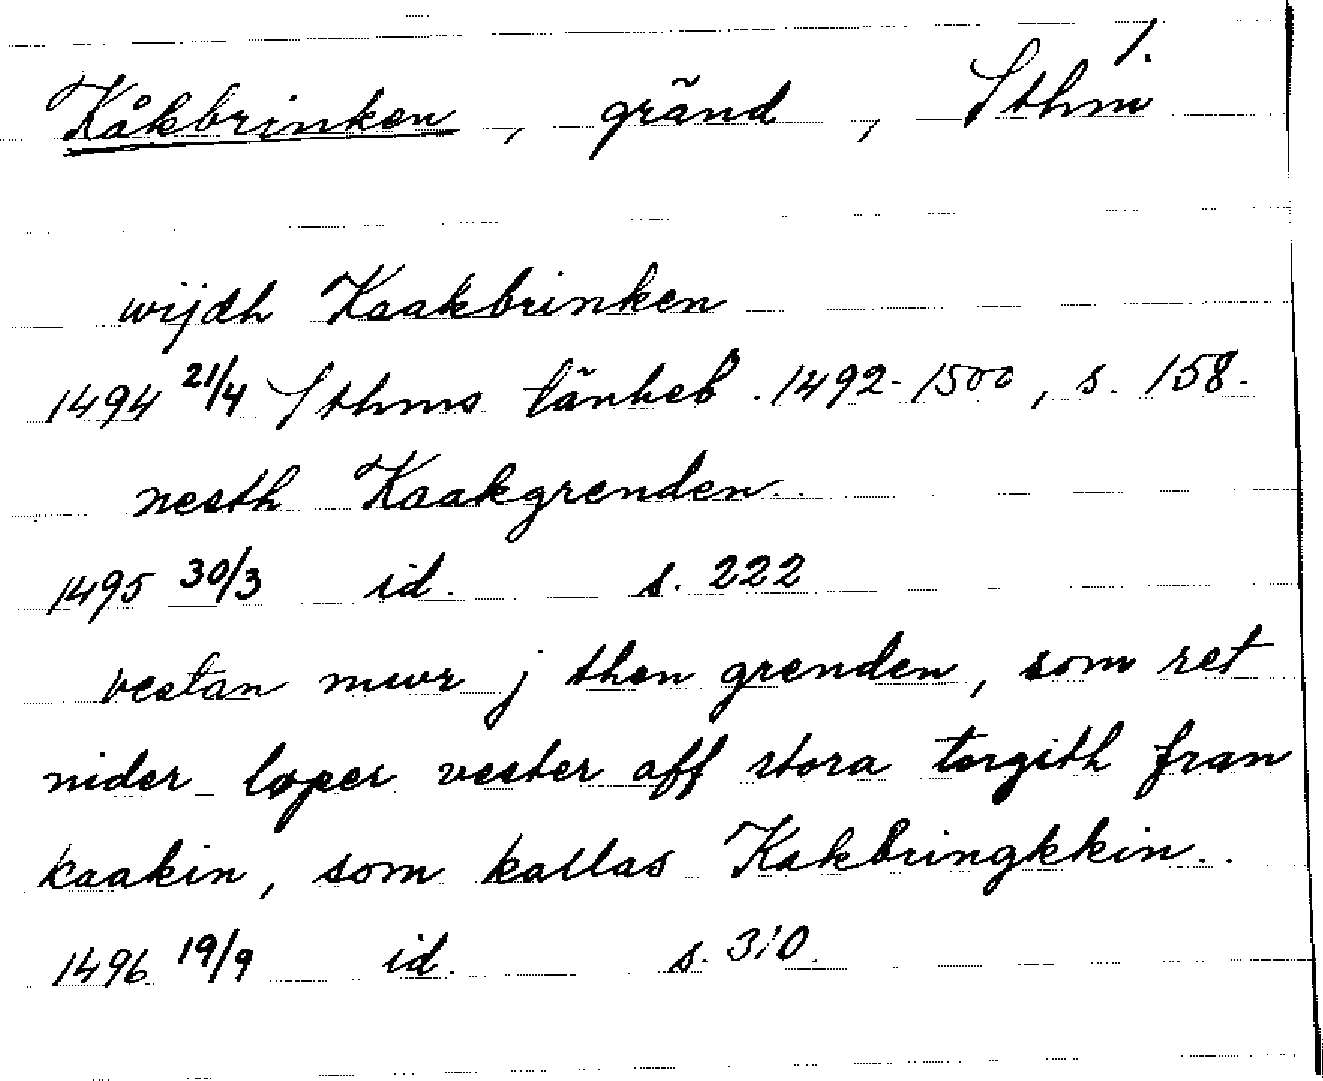 1.
Kåkbrinken, gränd, Sthm
wijdh Kaakbrinken
1494 21/4 Sthms tänkeb. 1492-1500, s. 158.
nesth Kaakgrenden..
1495 30/3 id. s. 222
vestan mwr j then grenden, som ret
nider løper vester aff stora torgith fran
kaakin, som kallas Kakbringkkin..
1496 19/9 id. s. 310.